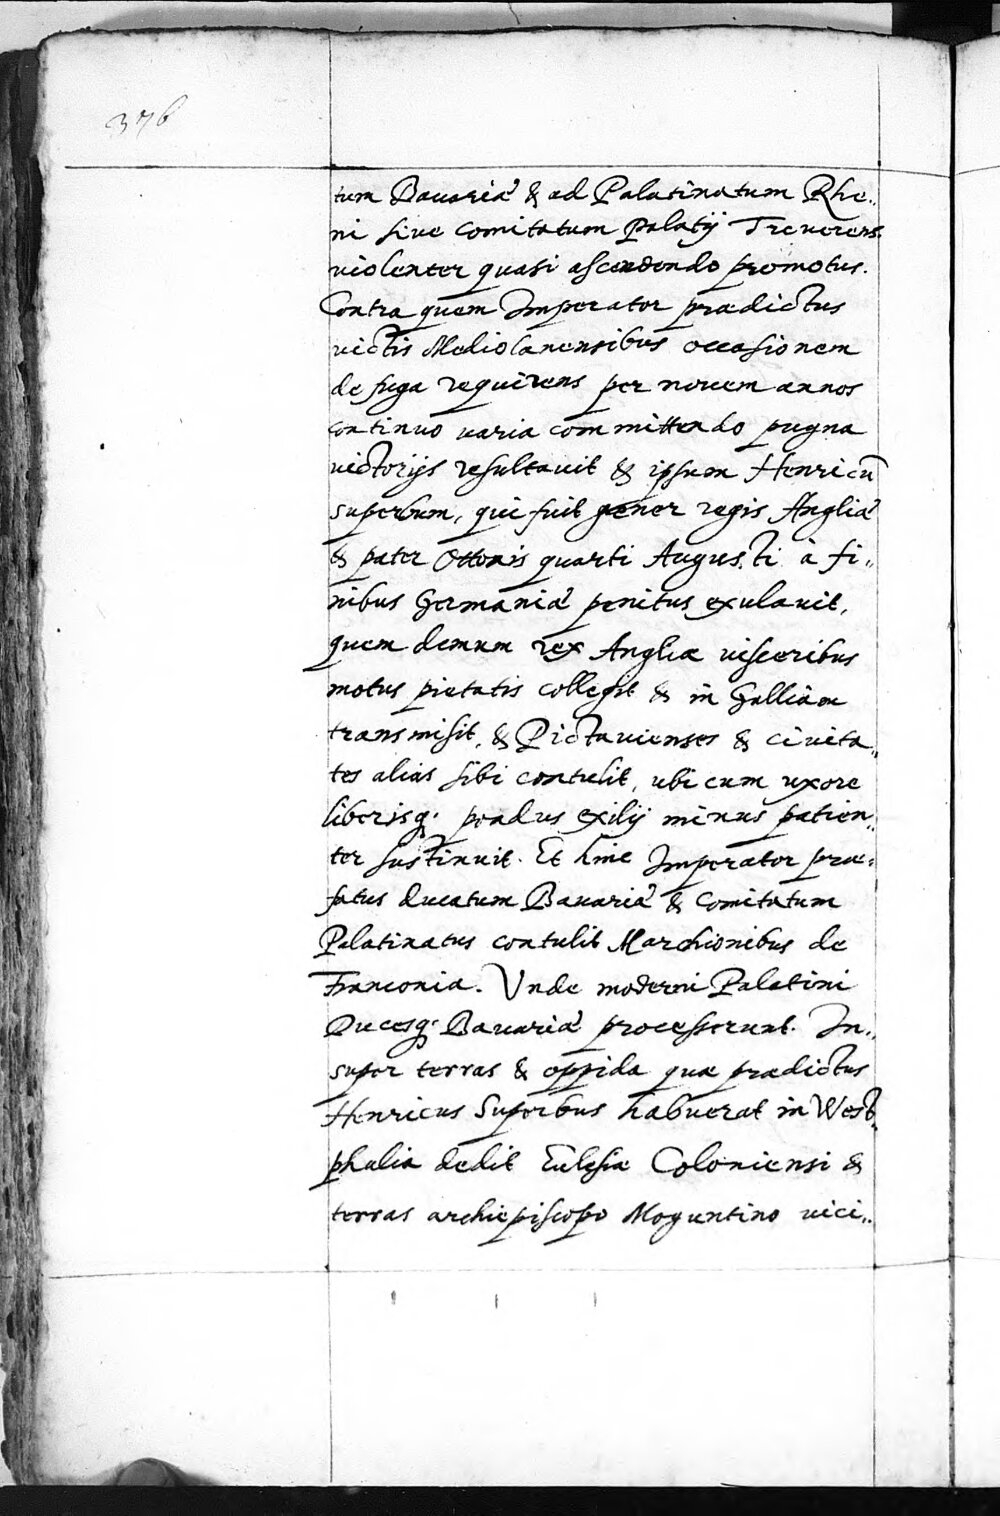 376
tum Bavariæ & ad Palatinatum Rhe„
ni sive comitatum Palatij Treverens.
violenter quasi ascendendo promotus.
Contra quem Imperator prædictus
victis Mediolanensibus occasionem
de fuga requirens per novem annos
continuo varia committendo pugna
victorijs resultavit & ipsum Henricū
superbum, qui fuit gener regis Angliæ
& pater Ottonis quarti Augusti à fi„
nibus Germaniæ penitus exulavit,
quem demum rex Angliæ visceribus
motus pietatis collegit & in Galliam
transmisit, & Pictavienses & civita„
tes alias sibi contulit, ubi cum uxore
liberisq; pondus exilij minus patien„
ter sustinuit. Et hinc Imperator præ„
fatus ducatum Bavariæ & Comitatum
Palatinatus contulit Marchionibus de
Franconia. Vnde moderni Palatini
Ducesq; Bavariæ processerunt. In„
super terras & oppida quæ prædictus
Henricus Superbus habuerat in West„
phalia dedit Eclesiæ Coloniensi &
terras archiepiscopo Moguntino vici„